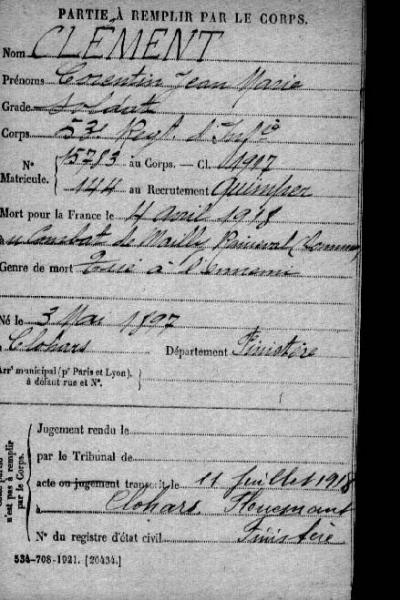 PARTIE À REMPLIR PAR LE CORPS.
Nom CLÉMENT
Prénoms Corentin Jean Marie
Grade Soldat
Corps 53e Regt. d'Infie
N° Matricule. 15783 au Corps. — Cl. 1917
144 au Recrutement Quimper
Mort pour la France le 4 avril 1918
au Combat de Mailly Raineval (Somme)
Genre de mort Tué à l'ennemi
Né le 3 Mai 1897
à Clohars Département Finistère
Arrt municipal (pr Paris et Lyon), à défaut rue et N°.
n'est pas à remplir par le Corps.
Jugement rendu le
par le Tribunal de
acte ou jugement transcrit le 11 Juillet 1918
à Clohars
Finistère
N° du registre d'état civil
534-708-1921. [20434.]